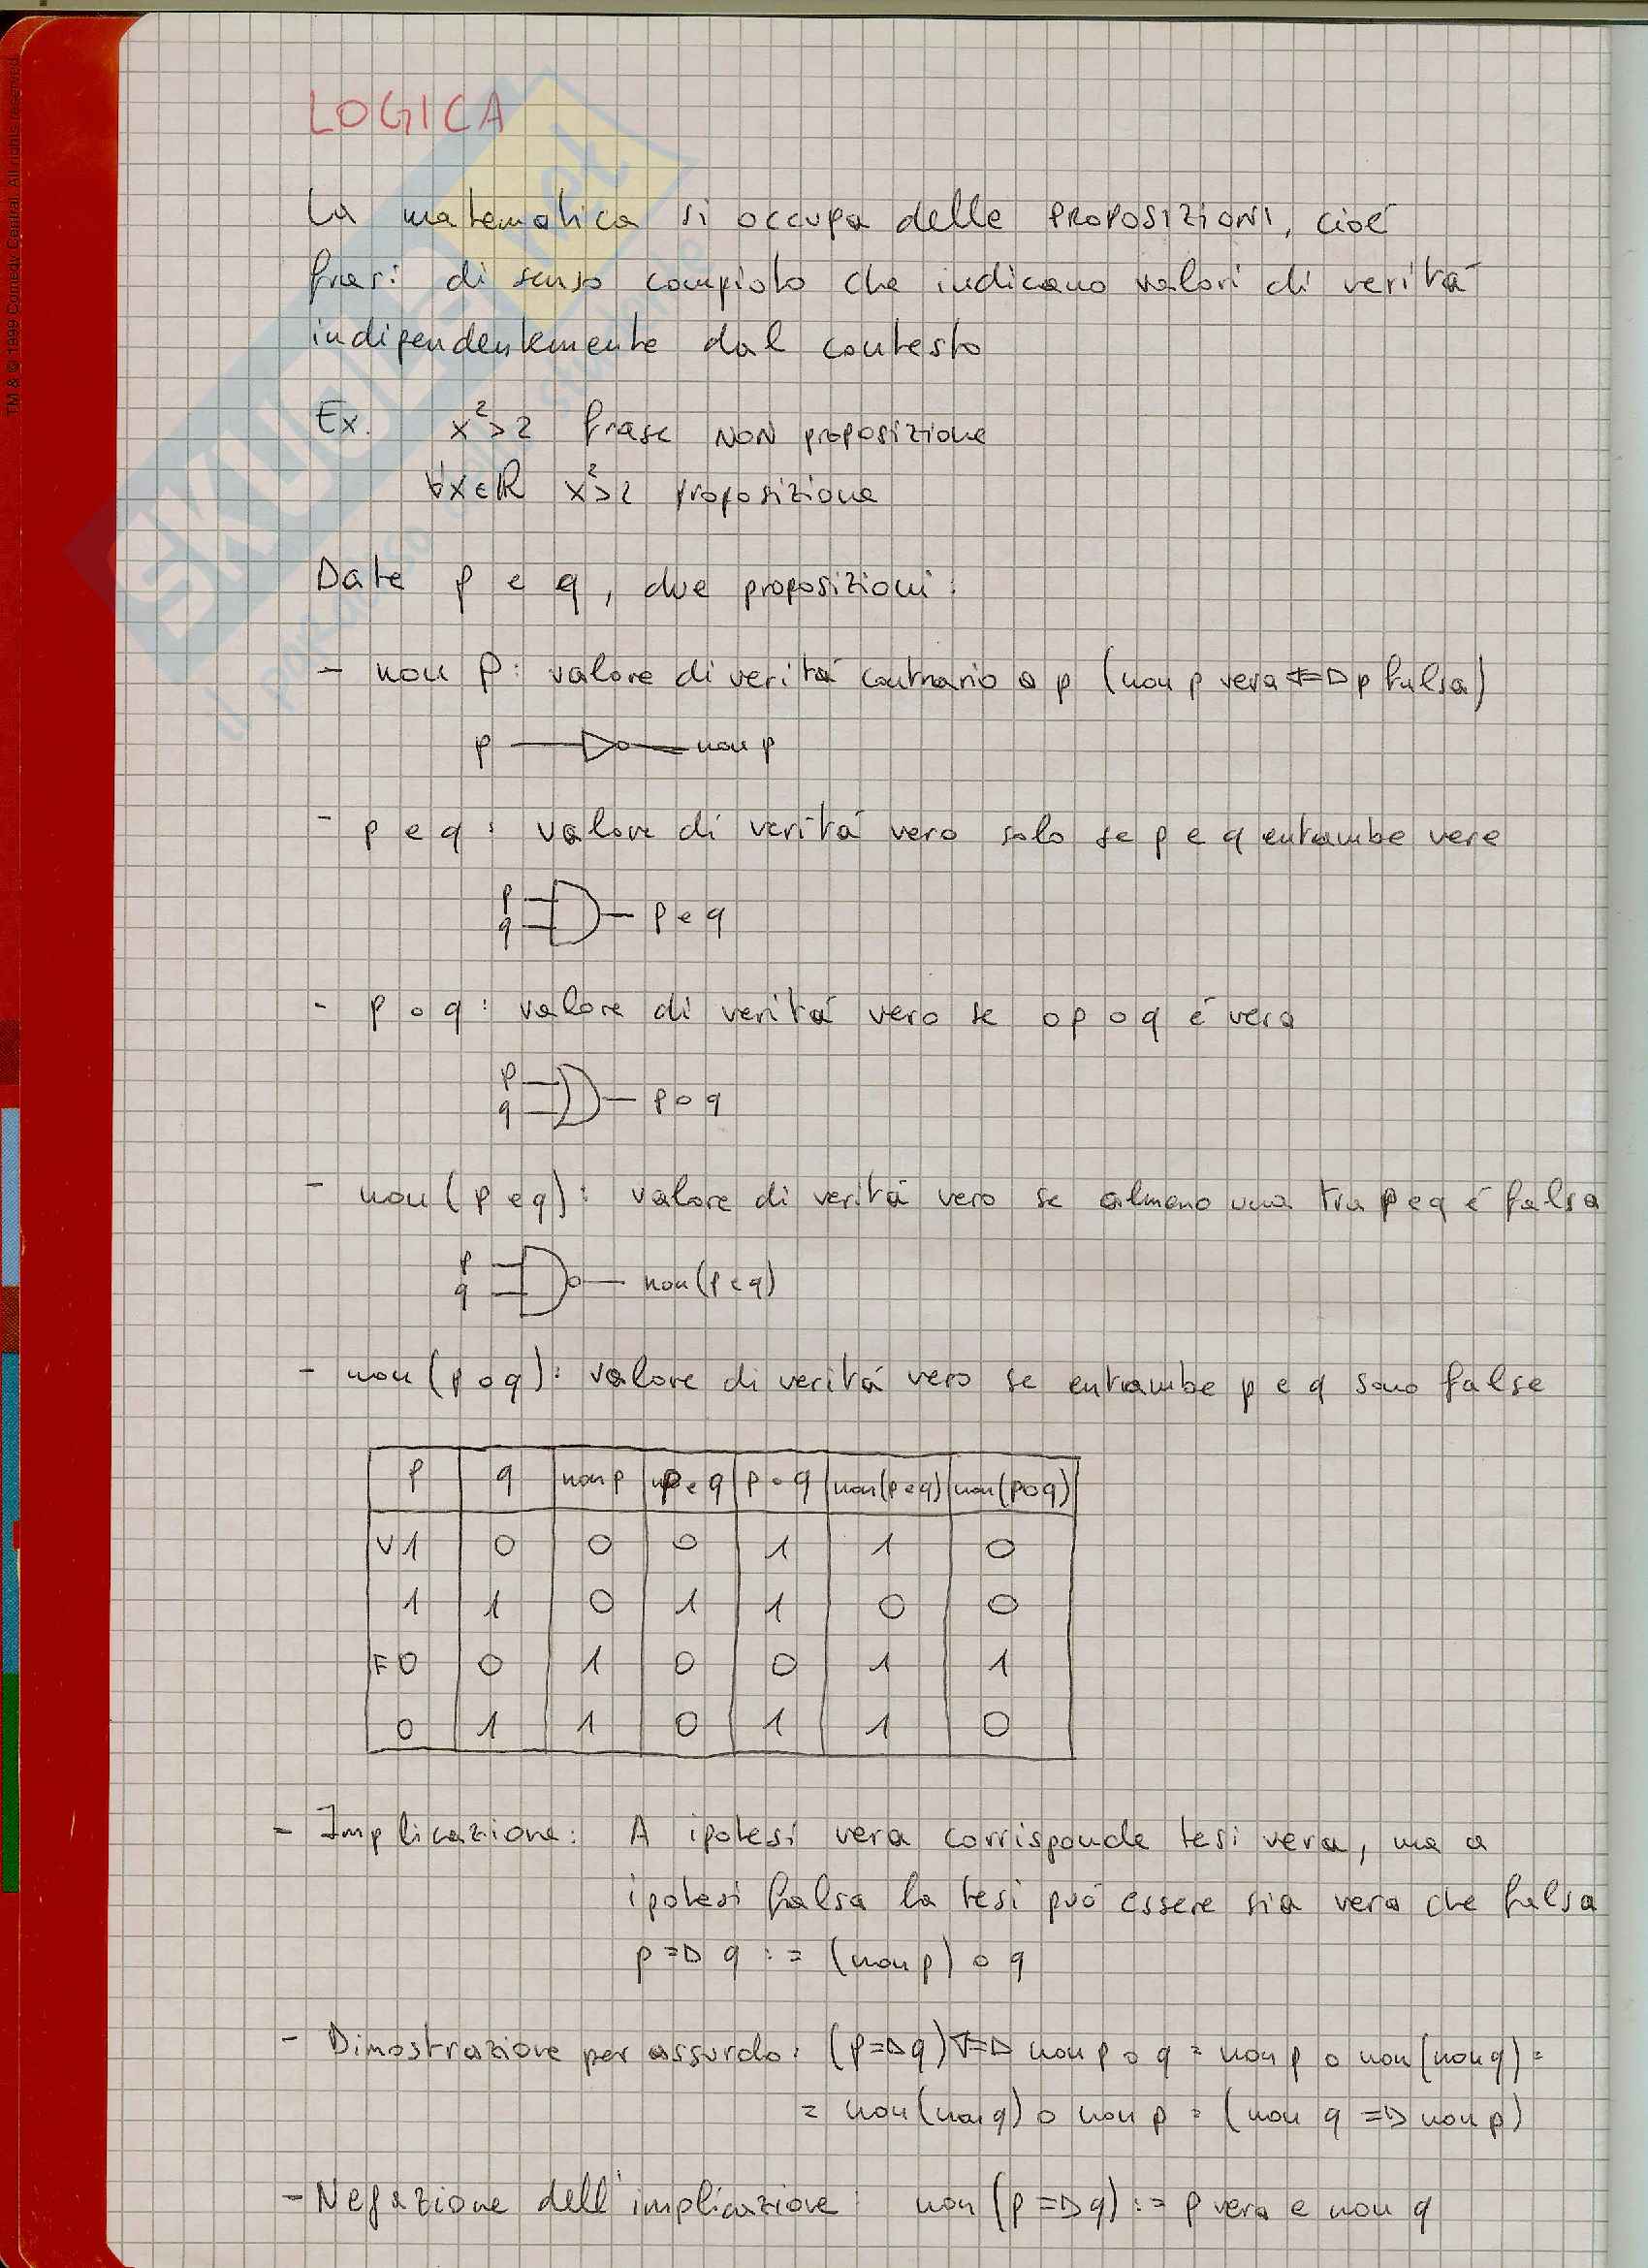 TM & © 1999 Comedy Central. All rights reserved.
SKUOLA.net
LOGICA
La matematica si occupa delle PROPOSIZIONI, cioé
frasi di senso compiuto che indicano valori di veritá
indipendentemente dal contesto
Ex. x²>2 frase NON proposizione
∀x∈ℝ x²>2 proposizione
Date p e q, due proposizioni:
- non p: valore di veritá contrario a p (non p vera <=> p falsa)
p non p
- p e q: valore di veritá vero solo se p e q entrambe vere
p
q p e q
- p o q: valore di veritá vero se o p o q é vera
p
q p o q
- non(p e q): valore di veritá vero se almeno una tra p e q é falsa
p
q non(p e q)
- non(p o q): valore di veritá vero se entrambe p e q sono false
p q non p p e q p o q non(p e q) non(p o q)
V 1 0 0 0 1 1 0
1 1 0 1 1 0 0
F 0 0 1 0 0 1 1
0 1 1 0 1 1 0
- Implicazione: A ipotesi vera corrisponde tesi vera, ma a
ipotesi falsa la tesi puó essere sia vera che falsa
p => q := (non p) o q
- Dimostrazione per assurdo: (p => q) <=> non p o q = non p o non(non q) =
= non(non q) o non p = (non q => non p)
- Negazione dell'implicazione: non (p => q) := p vera e non q